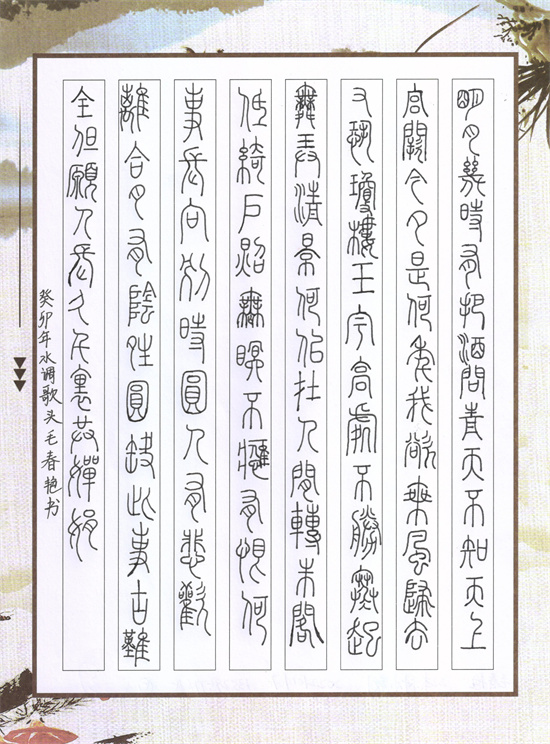 明月幾時有把酒問青天不知天上
宮闕今夕是何年我欲乘風歸去
又恐瓊樓玉宇高處不勝寒起
舞弄清景何似在人間轉朱閣
低綺戶照無眠不應有恨何
事長向別時圓人有悲歡
離合月有陰晴圓缺此事古難
全但願人長久千裏共嬋娟
癸卯年水调歌头毛春艳书